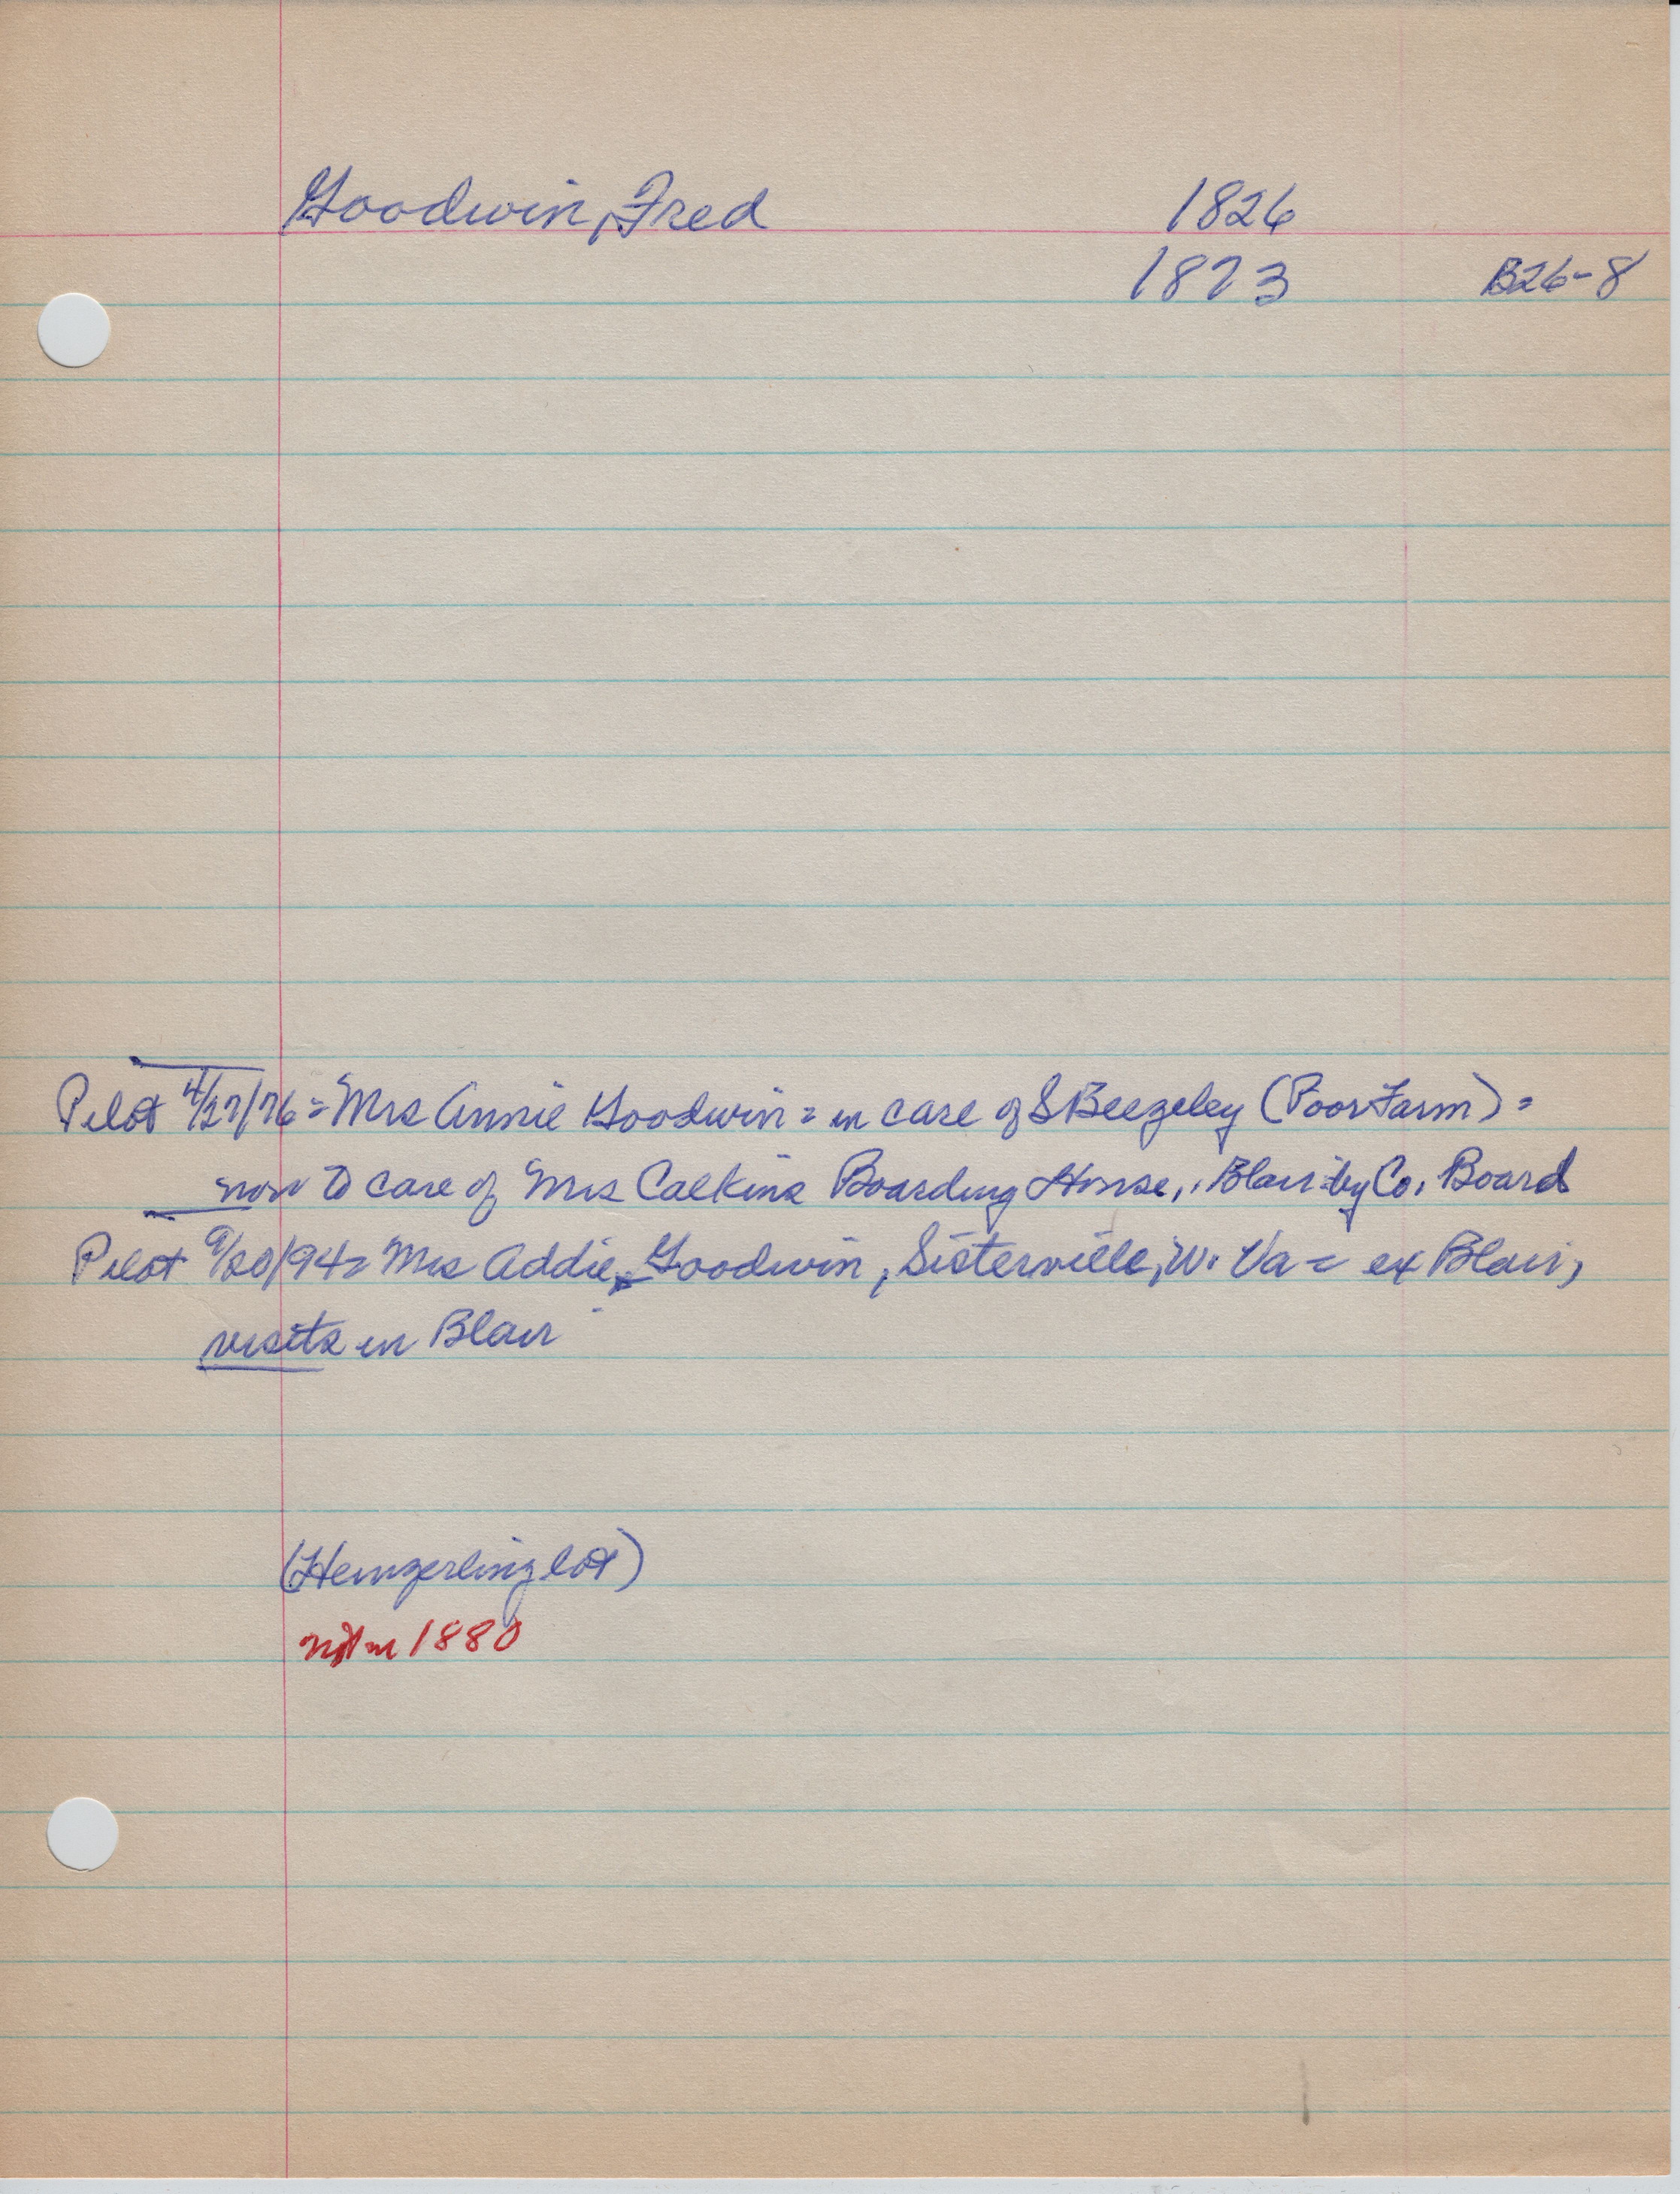 Goodwin, Fred 1826
1873 B26-8
Pilot 4/27/76 = Mrs Annie Goodwin = in care of S Beezeley (Poor Farm) =
now to care of Mrs Calkins Boarding House, Blair by Co. Board
Pilot 9/20/94 = Mrs Addie Goodwin, Sisterville, W. Va = ex Blair,
visits in Blair
(Hemgerling lot)
not in 1880